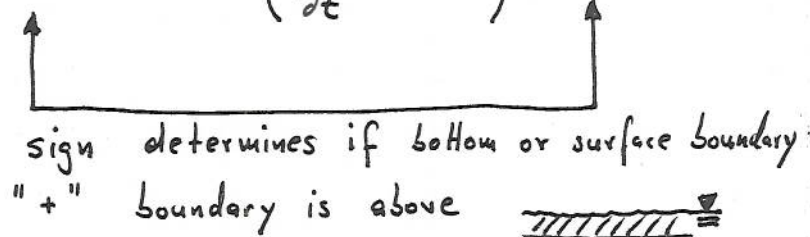 ( dt )
sign determines if bottom or surface boundary
"+" boundary is above